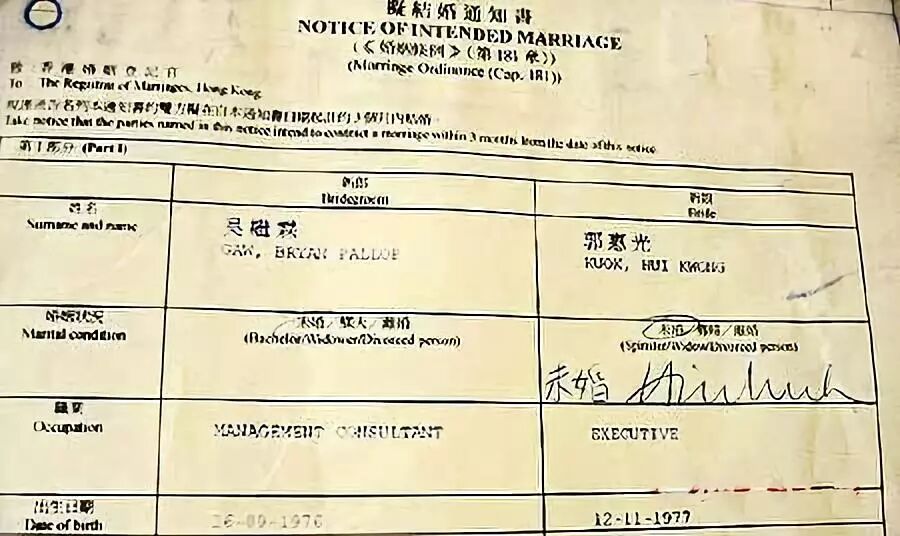 擬結婚通知書
NOTICE OF INTENDED MARRIAGE
(《婚姻條例》(第181章))
(Marriage Ordinance (Cap. 181))
致：香港婚姻登記官
To The Registrar of Marriages, Hong Kong
Take notice that the parties named in this notice intend to contract a marriage within 3 months from the date of this notice.
第1部分 (Part I)
新郎
Bridegroom
新娘
Bride
姓名
Surname and name
吳
GAW, BRYAN PALLOP
郭惠光
KUOK, HUI KWONG
婚姻狀況
Marital condition
未婚／鰥夫／離婚
(Bachelor/Widower/Divorced person)
未婚／寡婦／離婚
(Spinster/Widow/Divorced person)
未婚
職業
Occupation
MANAGEMENT CONSULTANT
EXECUTIVE
出生日期
Date of birth
26-09-1976
12-11-1977